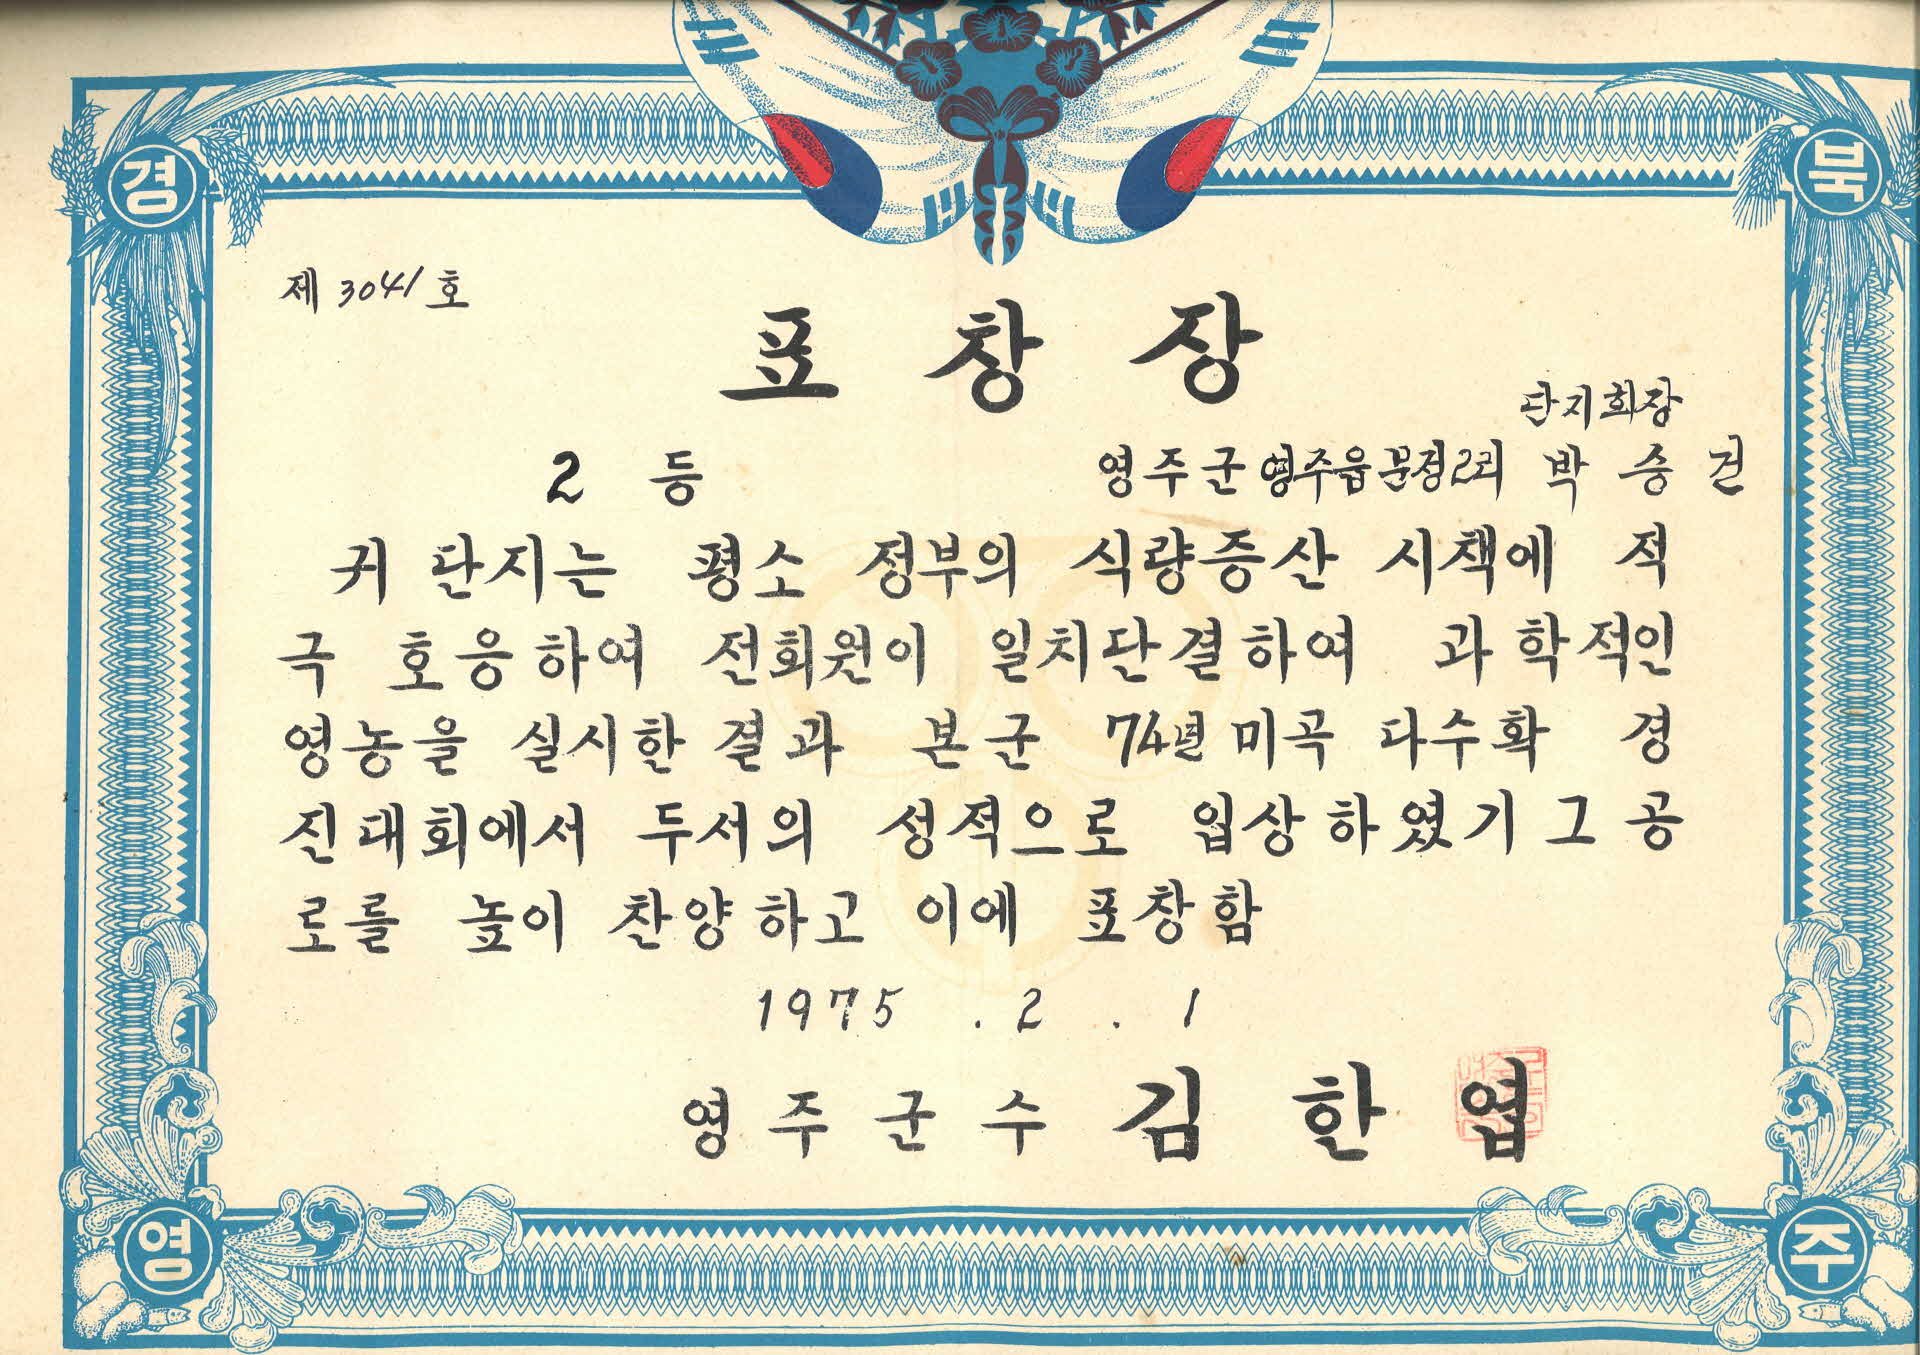 경 북
제 3041 호
표 창 장
단지회장
2 등 영주군 영주읍 문정2리 박 승 건
귀 단지는 평소 정부의 식량증산 시책에 적
극 호응하여 전회원이 일치단결하여 과학적인
영농을 실시한 결과 본군 74년 미곡 다수확 경
진대회에서 두서의 성적으로 입상하였기 그 공
로를 높이 찬양하고 이에 표창함
1975 . 2 . 1
영 주 군 수 김 한 엽
영 주